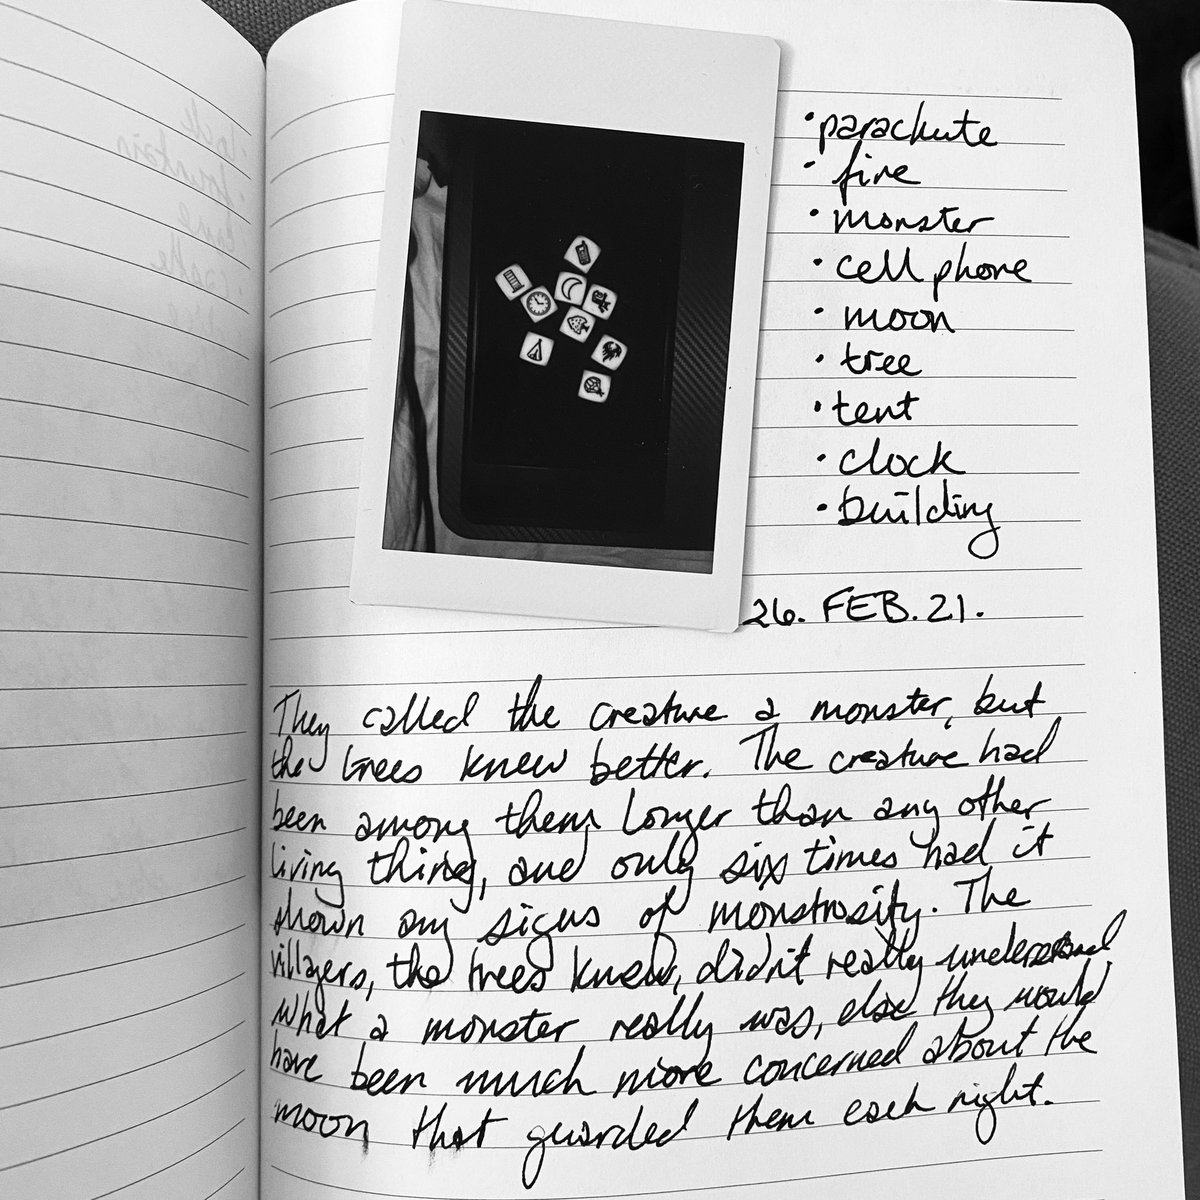 • parachute
• fire
• monster
• cell phone
• moon
• tree
• tent
• clock
• building
26. FEB. 21.
They called the creature a monster, but
the trees knew better. The creature had
been among them longer than any other
living thing, and only six times had it
shown any signs of monstrosity. The
villagers, the trees knew, didn't really understand
what a monster really was, else they would
have been much more concerned about the
moon that guarded them each night.